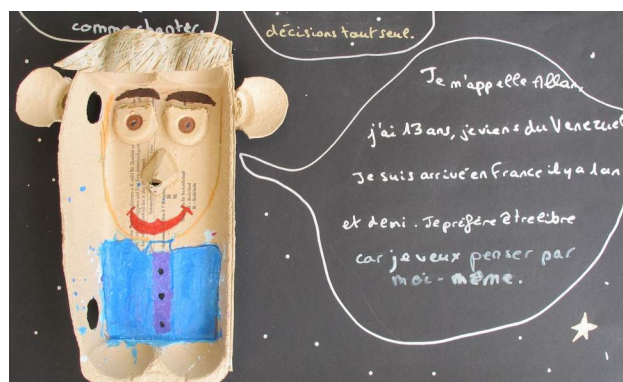 comme chanter.
décisions tout seul.
Je m'appelle Allan,
j'ai 13 ans, je viens du Venezuel
Je suis arrivé en France il y a 1 an
et demi. Je préfère être libre
car je veux penser par
moi-même.